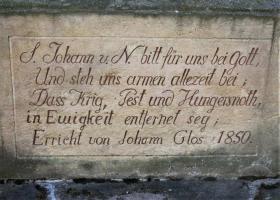 S. Johann v. N. bitt für uns bei Gott,
Und steh uns armen allezeit bei;
Dass Krig, Pest und Hungersnoth,
in Ewigkeit entfernet seg;
Erricht von Johann Glos 1850.